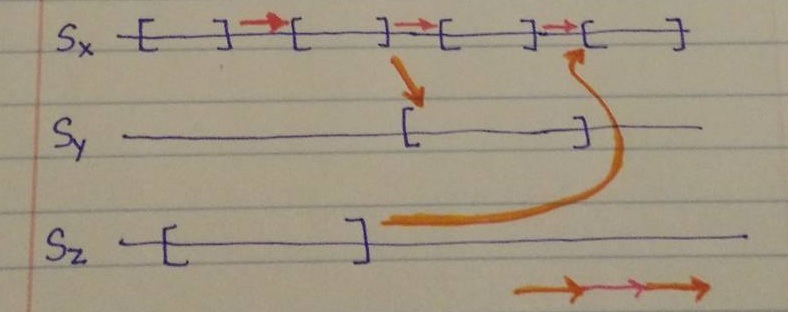 Sx [ ] [ ] [ ] [ ]
Sy [ ]
Sz [ ]